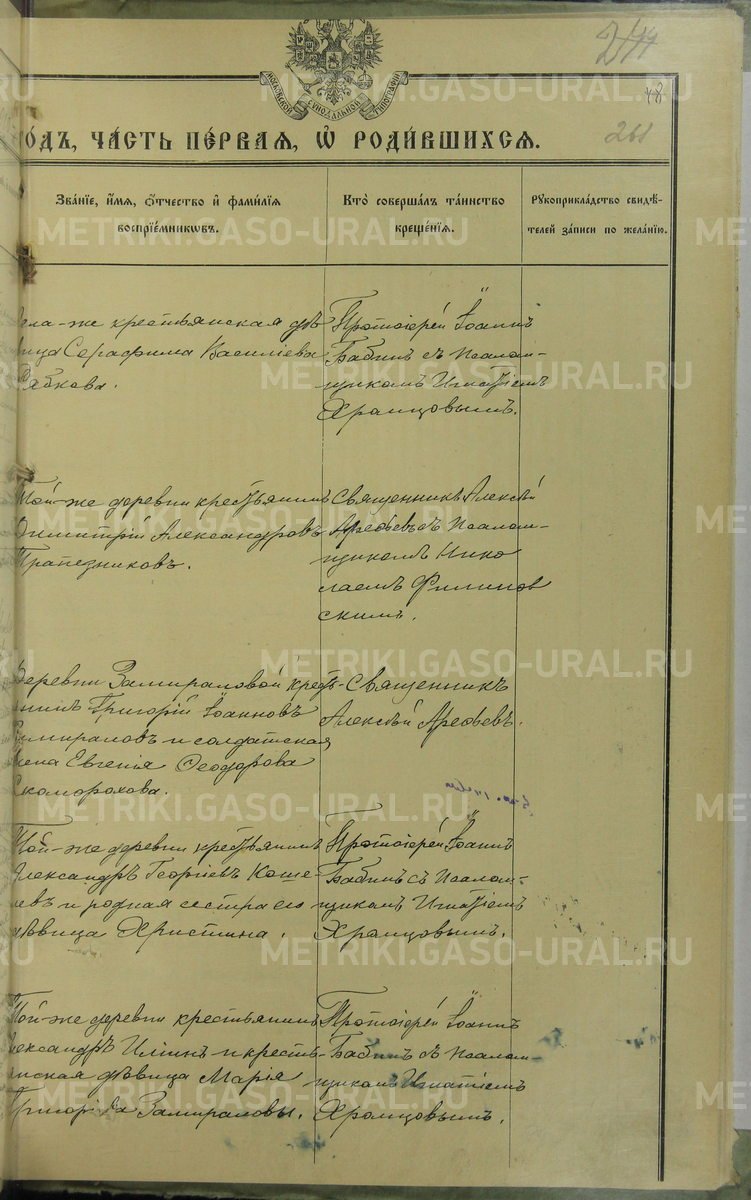 244
48
261
МОСКОВСКОЙ СѴНОДАЛЬНОЙ ТИПОГРАФІИ
О́ДЪ, ЧА́СТЬ ПЕ́РВАЯ, Ѡ҆ РОДИ́ВШИХСЯ.
Зва́нїе, и҆́мя, ѻ҆́тчество и҆ фами́лїя
воспрїе́мникѡвъ.
Кто̀ соверша́лъ та́инство
креще́нїя.
Рукоприкла́дство свидѣ́-
телей за́писи по жела́нїю.
села-же крестьянская дѣ
вица Серафима Василіева
Рябкова.
Протоіерей Іоаннъ
Бабинъ съ псалом-
щикомъ Игнатіемъ
Храмцовымъ.
Той-же деревни крестьянинъ
Димитрій Александровъ
Трапезниковъ.
Священникъ Алексѣй
Арефьевъ съ псалом-
щикомъ Нико
лаемъ Филипов
скимъ.
Деревни Замираловой крестъ-
янинъ Григорій Іоанновъ
Замираловъ и солдатская
жена Евгенія Ѳеодорова
Скоморохова.
Священникъ
Алексѣй Арефьевъ.
Той-же деревни крестьянинъ
Александръ Георгіевъ Коше-
левъ и родная сестра его
дѣвица Христина.
Протоіерей Іоаннъ
Бабинъ съ псалом-
щикомъ Игнатіемъ
Храмцовымъ.
Той-же деревни крестьянинъ
Александръ Илiинъ и кресть-
янская дѣвица Марія
Григоріева Замираловы.
Протоіерей Іоаннъ
Бабинъ съ псалом-
щикомъ Игнатіемъ
Храмцовымъ.
METRIKI.GASO-URAL.RU